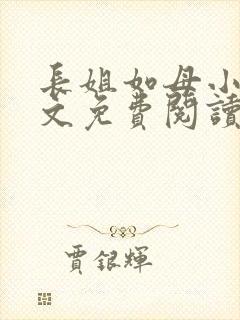 長姐如母小
文免費閱讀
賈銀輝